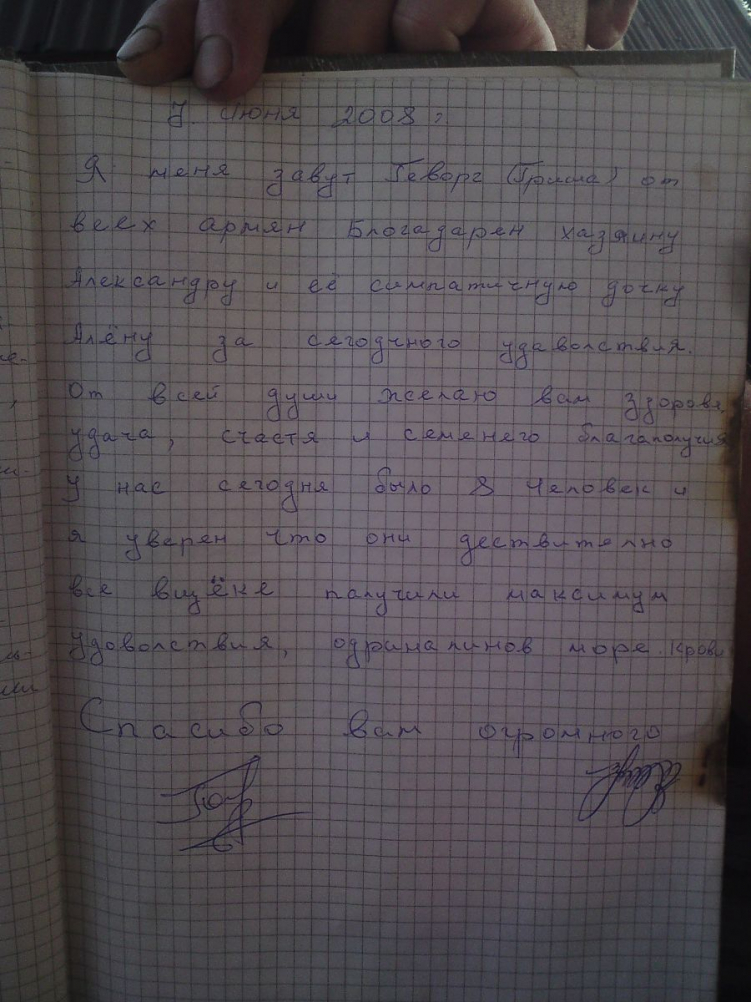 7. июня 2008 г.
Я меня завут Геворг (Гриша) от
всех армян Благадарен хазяину
Александру и её симпатичную дочку
Алёну за сегодчного удаволствия.
От всей души желаю вам здоровя
удача, счастя и семенего благаполучия
У нас сегодня было 8 человек и
я уверен что они дествително
все вщёке палучили максимум
удоволствия, одриналинов море. крови
Спасибо вам огромного